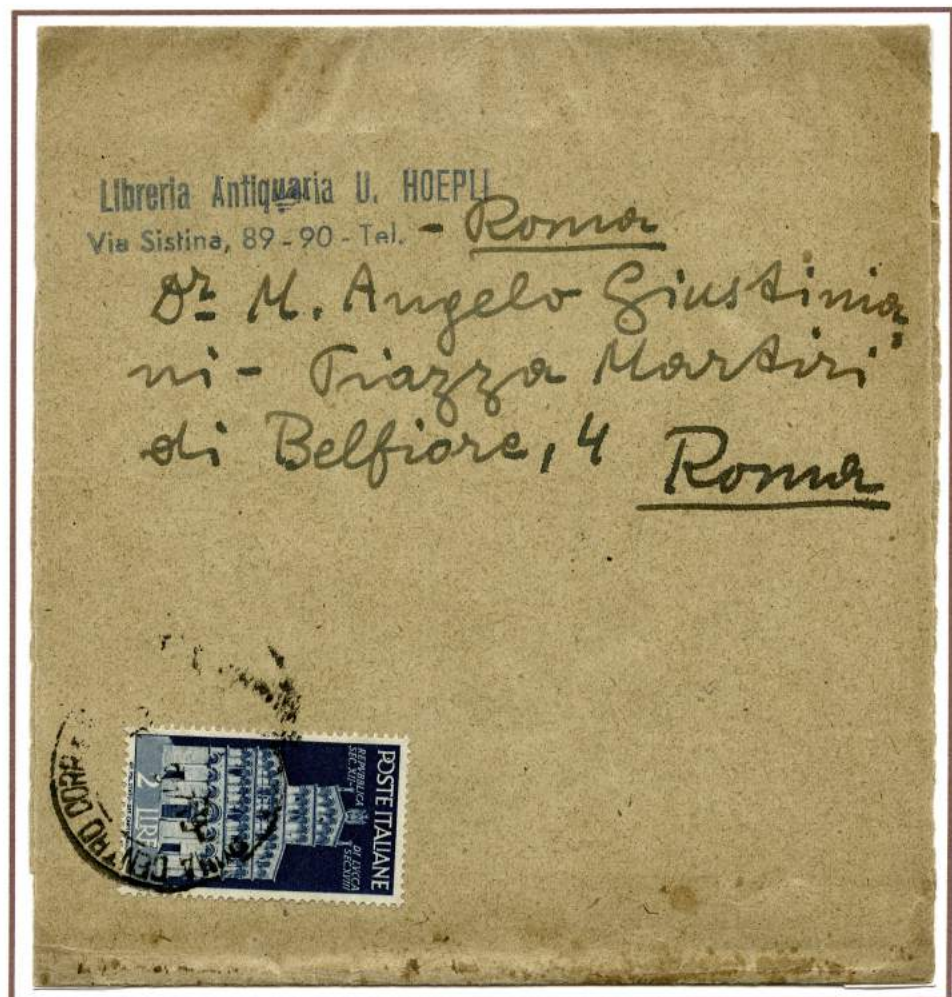 Libreria Antiquaria U. HOEPLI
Via Sistina, 89-90 - Tel. - Roma
Dr M. Angelo Giustinia
ni - Piazza Martiri
di Belfiore, 4
Roma
POSTE ITALIANE
REPVBBLICA DI LVCCA
SEC XII - SEC XVIII
2 LIRE
ROMA CENTRO CORR